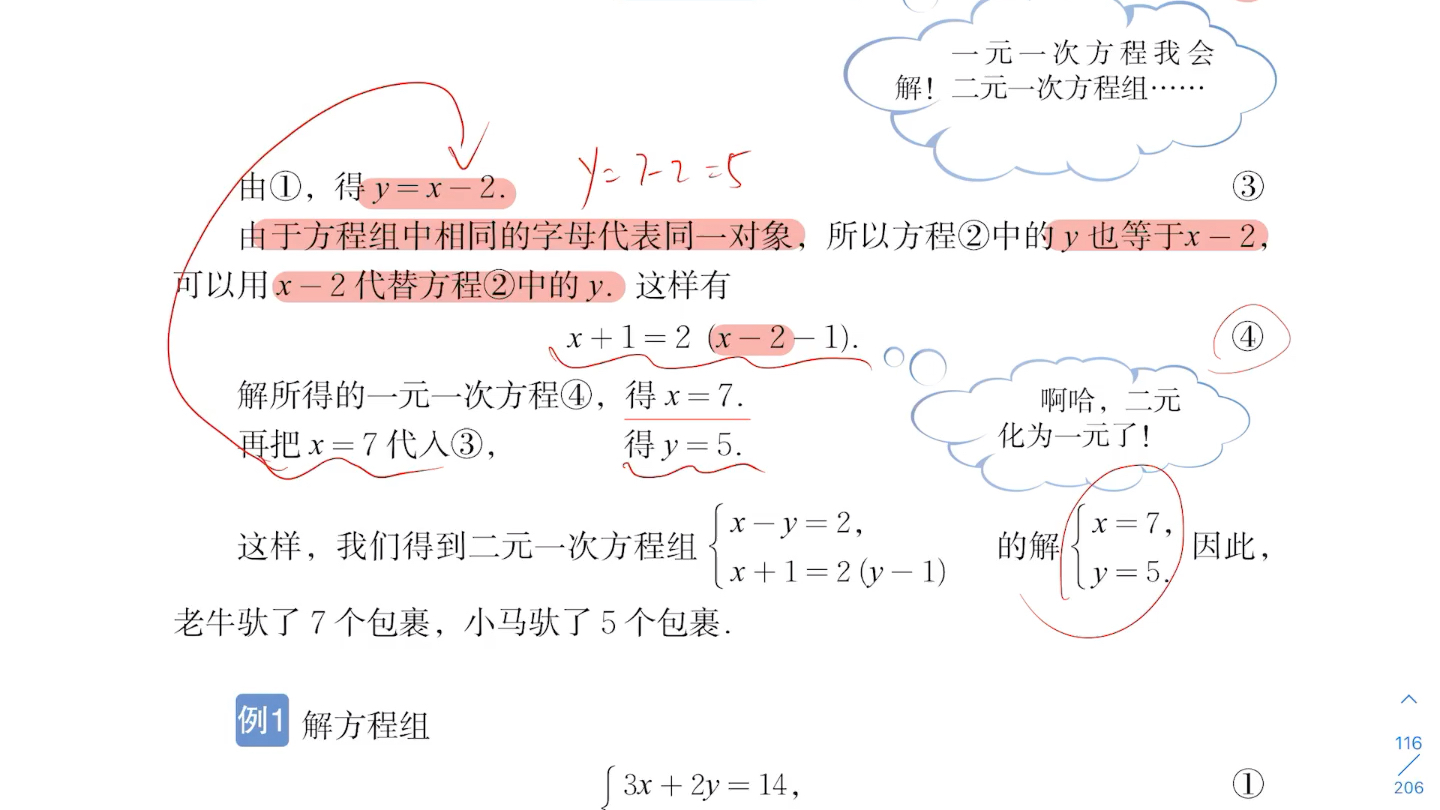 一元一次方程我会
解！二元一次方程组……
由①，得 y＝x－2. y=7-2=5 ③
由于方程组中相同的字母代表同一对象，所以方程②中的 y 也等于x－2，
可以用 x－2 代替方程②中的 y. 这样有
x＋1＝2 (x－2－1). ④
解所得的一元一次方程④，得 x＝7.
啊哈，二元
化为一元了！
再把 x＝7 代入③， 得 y＝5.
这样，我们得到二元一次方程组 { x－y＝2， x＋1＝2(y－1) 的解 { x＝7， y＝5. 因此，
老牛驮了 7 个包裹，小马驮了 5 个包裹.
例1 解方程组
{ 3x＋2y＝14， ①
116
206